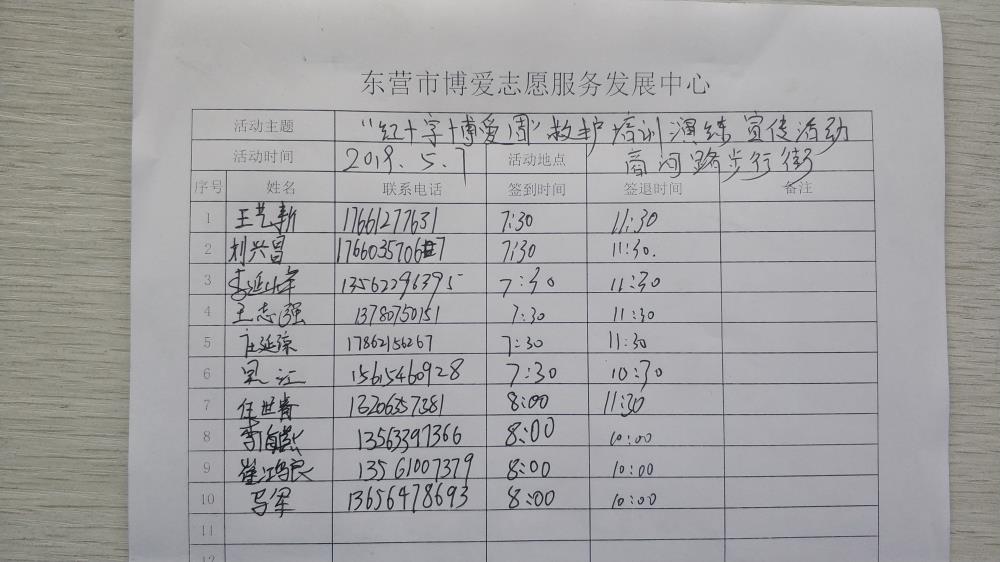 东营市博爱志愿服务发展中心
活动主题 “红十字博爱周”救护培训演练宣传活动
活动时间 2019.5.7 活动地点 商河路步行街
序号 姓名 联系电话 签到时间 签退时间 备注
1 王艺新 17661277631 7:30 11:30
2 刘兴昌 1766035706 7 7:30 11:30.
3 李延年 13562296395 7:30 11:30
4 王志强 13780750151 7:30 11:30
5 庄延琼 17862156267 7:30 11:30
6 吴江 15615460928 7:30 10:30
7 任世青 13206357381 8:00 11:30
8 李 燕 13563397366 8:00 10:00
9 崔鸿良 13561007379 8:00 10:00
10 马军 13656478693 8:00 10:00
11
12